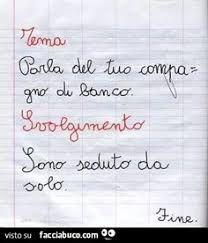 Tema
Parla del tuo compa=
gno di banco.
Svolgimento
Sono seduto da
solo.
Fine.
visto su facciabuco.com